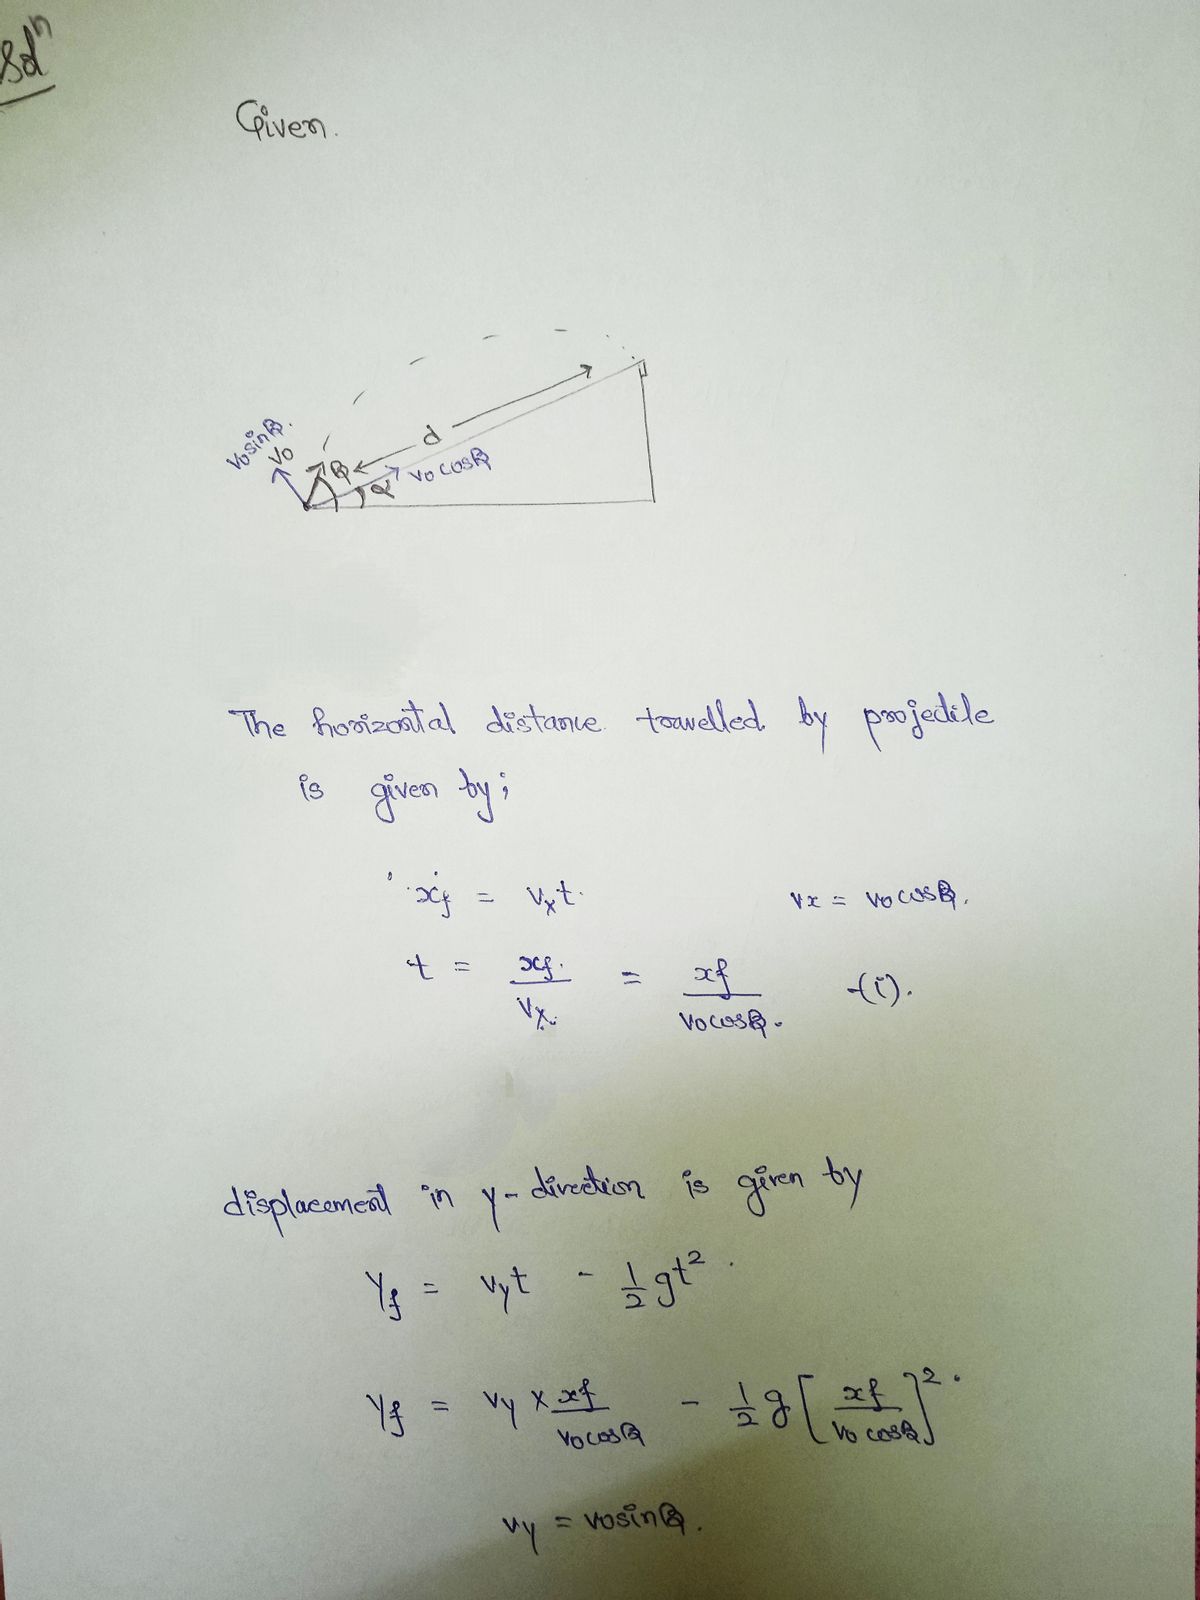 Solⁿ
Given.
v₀sinβ.
v₀
β
d
v₀cosβ
α
The horizontal distance travelled by projectile
is given by;
x_f = vₓt.
vx = v₀cosβ.
t = x_f./vₓ. = xf/v₀cosβ. -(i).
displacement in y-direction is given by
Y_f = v_yt - 1/2 gt².
Y_f = vy × xf/v₀cosβ - 1/2 g[xf/v₀cosβ]².
vy = v₀sinβ.